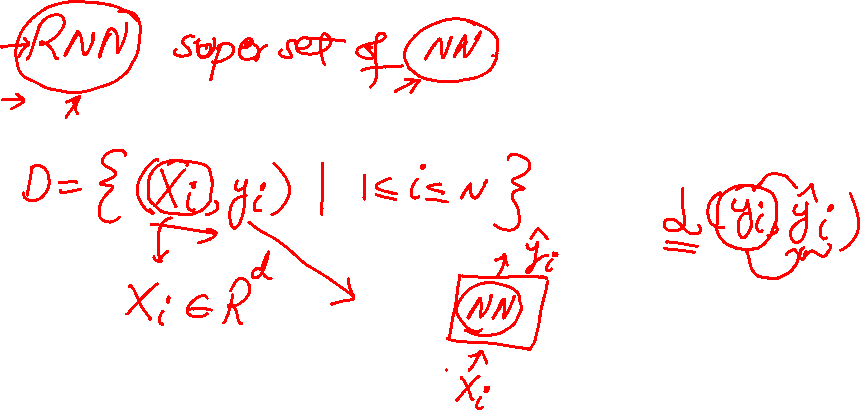 RNN super set of NN
D = { (Xi, yi) | 1 ≤ i ≤ N }
Xi ∈ R^d
ŷi
NN
Xi
L(yi, ŷi)